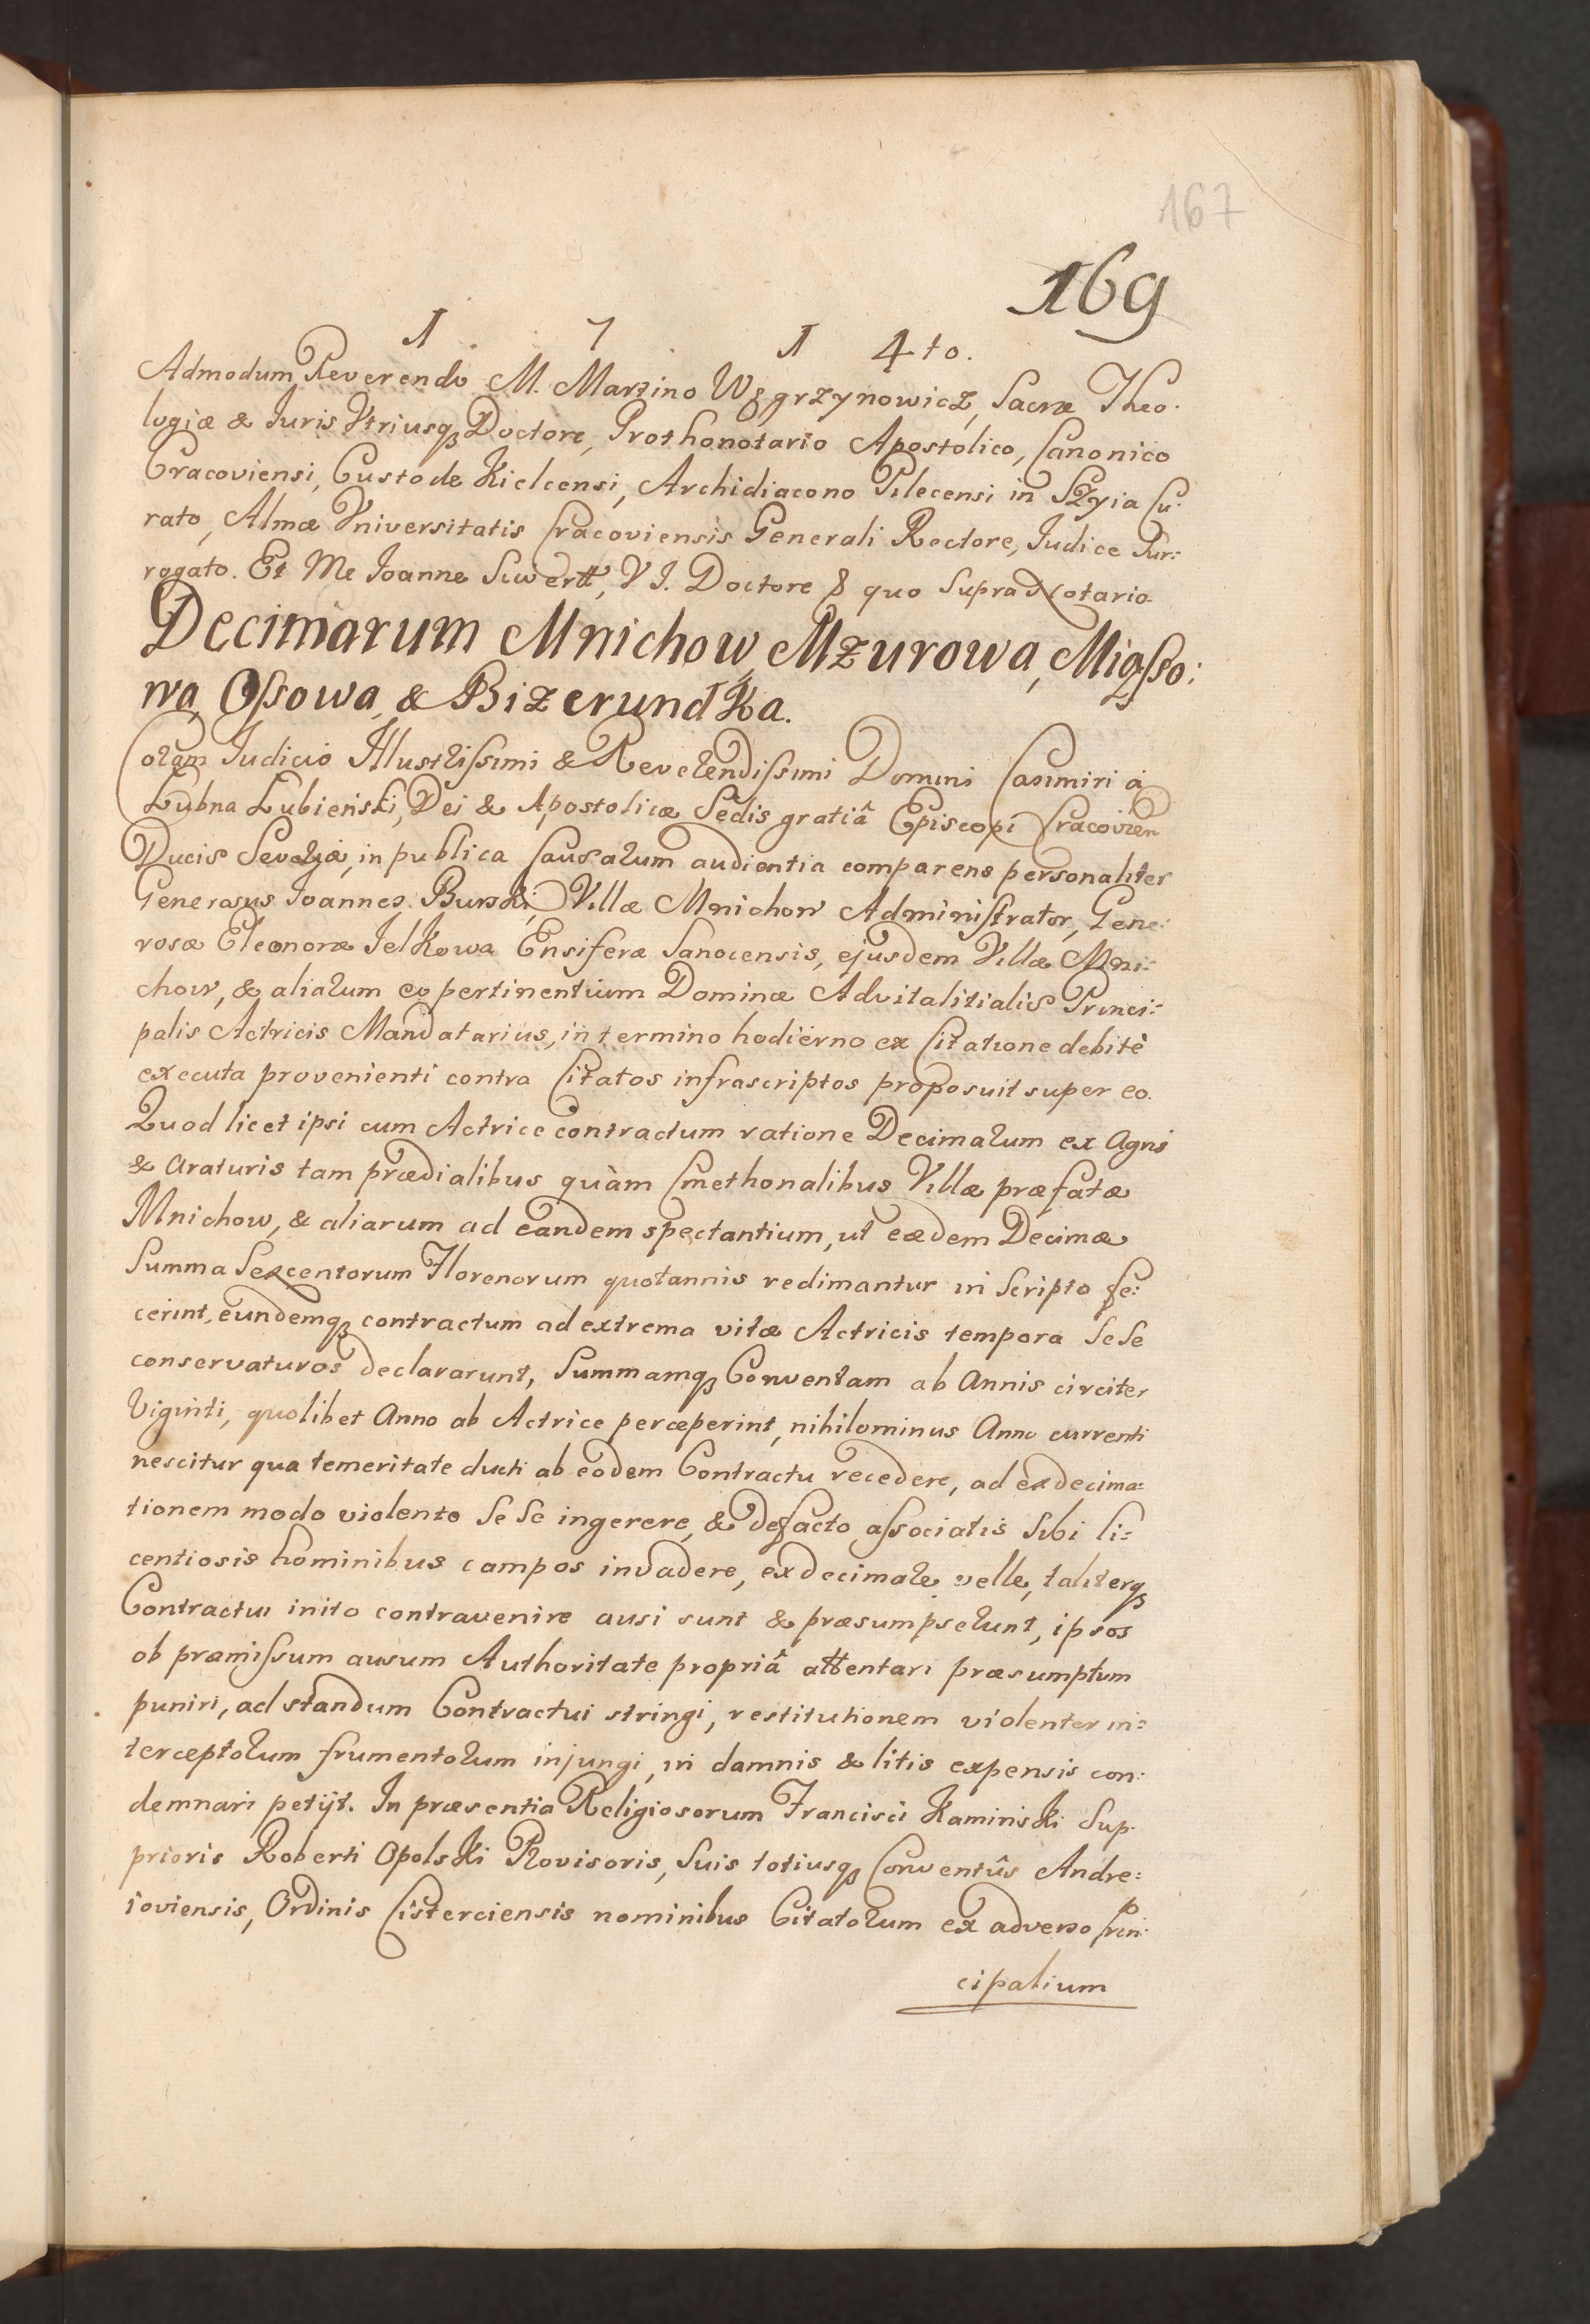 167
169
1 7 1 4to.
Admodum Reverendo M. Martino Węgrzynowicz, Sacræ Theo:
logiæ & Iuris Vtriusq; Doctore, Prothonotario Apostolico, Canonico
Cracoviensi, Custode Kielcensi, Archidiacono Pilecensi in Skyia Cu:
rato, Almæ Vniversitatis Cracoviensis Generali Rectore, Iudice Sur:
rogato. Et Me Ioanne Siwertt, V I. Doctore & quo supra Notario.
Decimarum Mnichow, Mzurowa, Mięsso:
wa, Ossowa, & BizerundKa.
Coram Iudicio Illustrissimi & Reverendissimi Domini Casimiri à
Łubna Łubieński, Dei & Apostolicæ Sedis gratiâ Episcopi Cracovien
Ducis Severiæ, in publica Causarum audientia comparens personaliter
Generosus Ioannes Burski, Villæ Mnichow Administrator, Gene:
rosæ Eleonoræ JelKowa Ensiferæ Sanocensis, ejusdem Villæ Mni:
chow, & aliarum eo pertinentium Dominæ Advitalitialis Princi:
palis Actricis Mandatarius, in termino hodierno ex Citatione debitè
executa provenienti contra Citatos infrascriptos proposuit super eo.
Quod licet ipsi cum Actrice contractum ratione Decimarum ex Agris
& Araturis tam prædialibus quàm Cmethonalibus Villæ præfatæ
Mnichow, & aliarum ad eandem spectantium, ut eædem Decimæ
Summa Sexcentorum Florenorum quotannis redimantur in Scripto fe:
cerint, eundemq; contractum ad extrema vitæ Actricis tempora Se Se
conservaturos declararunt, Summamq; Conventam ab Annis circiter
Viginti, quolibet Anno ab Actrice perceperint, nihilominus Anno currenti
nescitur qua temeritate ducti ab eodem Contractu recedere, ad exdecima:
tionem modo violento Se Se ingerere, & defacto associatis Sibi li:
centiosis hominibus campos invadere, exdecimare velle, taliterq;
Contractui inito contravenire ausi sunt & præsumpserunt, ipsos
ob præmissum ausum Authoritate propriâ attentari præsumptum
puniri, ad standum Contractui stringi, restitutionem violenter in:
terceptorum frumentorum injungi, in damnis & litis expensis con:
demnari petijt. In præsentia Religiosorum Francisci KaminsKi Sup:
prioris Roberti OpolsKi Provisoris, Suis totiusq; Conventûs Andre:
ioviensis, Ordinis Cisterciensis nominibus Citatorum ex adverso Prin:
cipalium